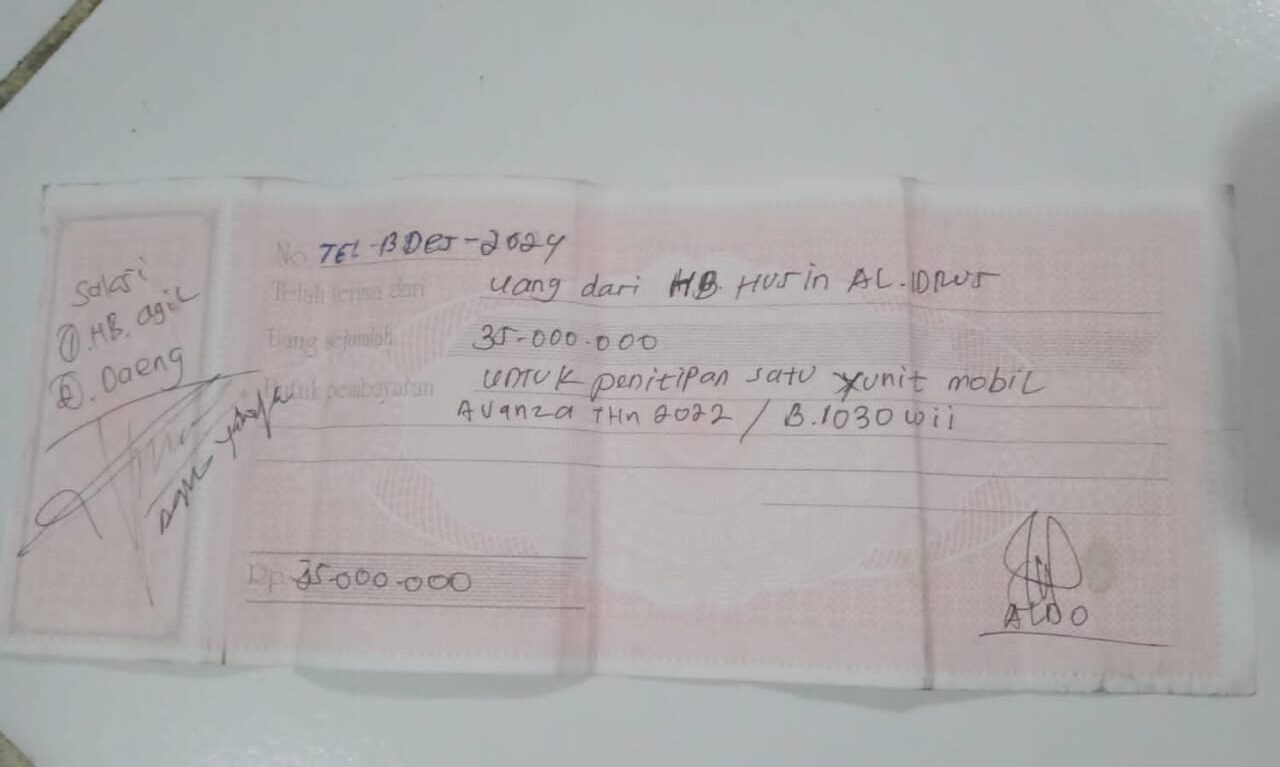 No. TEL-BDES-2024
Telah terima dari uang dari HB. HUSin AL.IDRUS
Uang sejumlah 35-000.000
Untuk pembayaran UNTUK penitipan satu unit mobil
AVanza THn 2022 / B.1030 wii
Rp. 35-000-000
ALDO
Saksi
①.HB. agil
②. Daeng